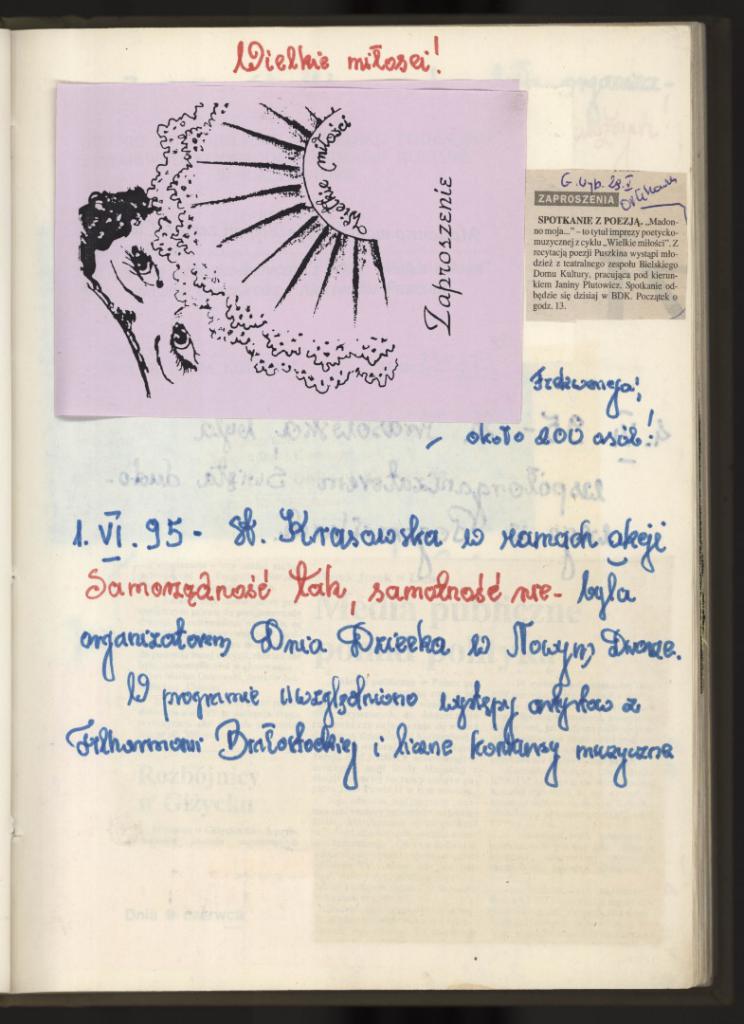 Wielkie miłości!
Wielkie miłości
Zaproszenie
G. Wyb. 23.V
ZAPROSZENIA
SPOTKANIE Z POEZJĄ. „Madon-
no moja...” – to tytuł imprezy poetycko-
muzycznej z cyklu „Wielkie miłości”. Z
recytacją poezji Puszkina wystąpi mło-
dzież z teatralnego zespołu Bielskiego
Domu Kultury, pracująca pod kierun-
kiem Janiny Plutowicz. Spotkanie od-
będzie się dzisiaj w BDK. Początek o
godz. 13.
Frekwencja:
około 200 osób!
1. VI. 95 - St. Krasowska w ramach akcji
Samorządność tak, samotność nie - była
organizatorem Dnia Dziecka w Nowym Dworze.
W programie uwzględniono występy artystów z
Filharmonii Białostockiej i liczne konkursy muzyczne